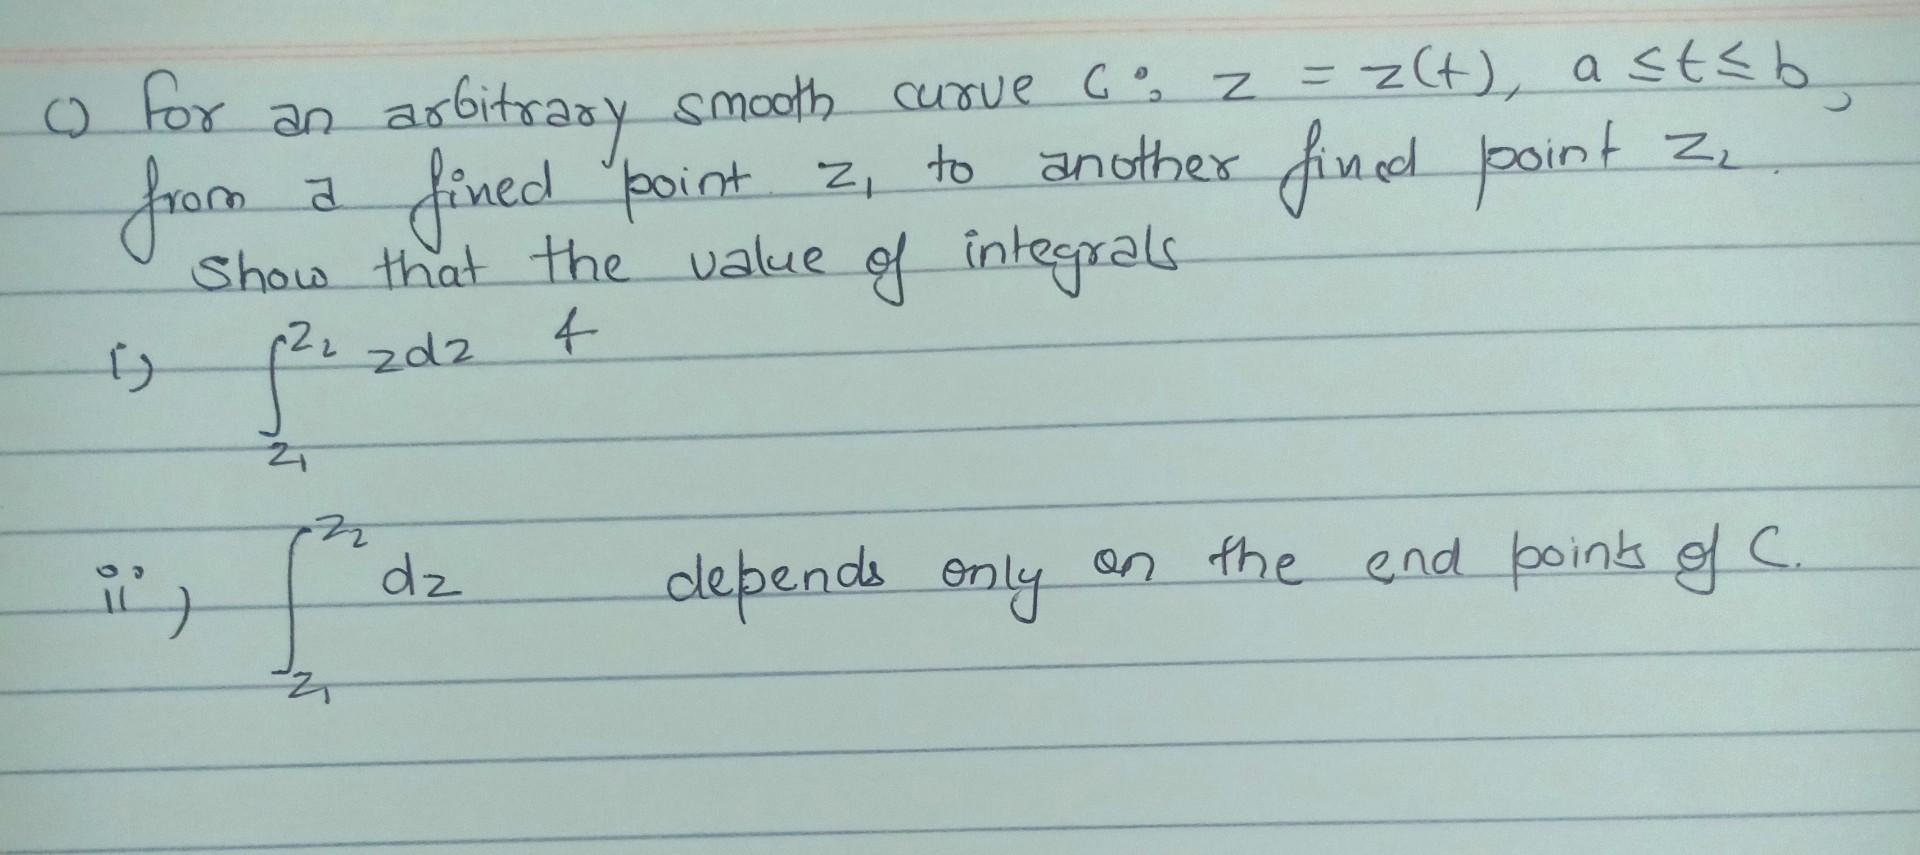 c) for an arbitrary smooth curve C: z = z(t), a ≤ t ≤ b,
from a fined point z₁ to another fined point z₂.
Show that the value of integrals
i) ∫_{z₁}^{z₂} z dz &
ii) ∫_{z₁}^{z₂} dz depends only on the end points of C.